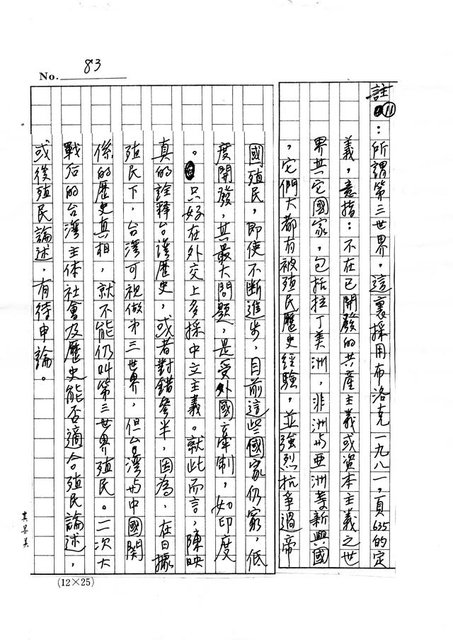 No. 83
註⑪：所謂第三世界，這裏採用布洛克一九八一，頁635的定
義，意指：不在已開發的共產主義或資本主義之世
界其它國家，包括拉丁美洲，非洲與亞洲等新興國
，它們大都有被殖民歷史經驗，並強烈抗爭過帝
國殖民，即使不斷進步，目前這些國家仍窮，低
度開發，其最大問題，是受外國牽制，如印度
。只好在外交上多採中立主義。就此而言，陳映
真的詮釋台灣歷史，或者對錯參半，因為，在日據
殖民下，台灣可視做第三世界，但台灣與中國關
係的歷史真相，就不能仍叫第三世界殖民。二次大
戰后的台灣主体社會及歷史能否適合殖民論述，
或後殖民論述，有待申論。
(12×25)